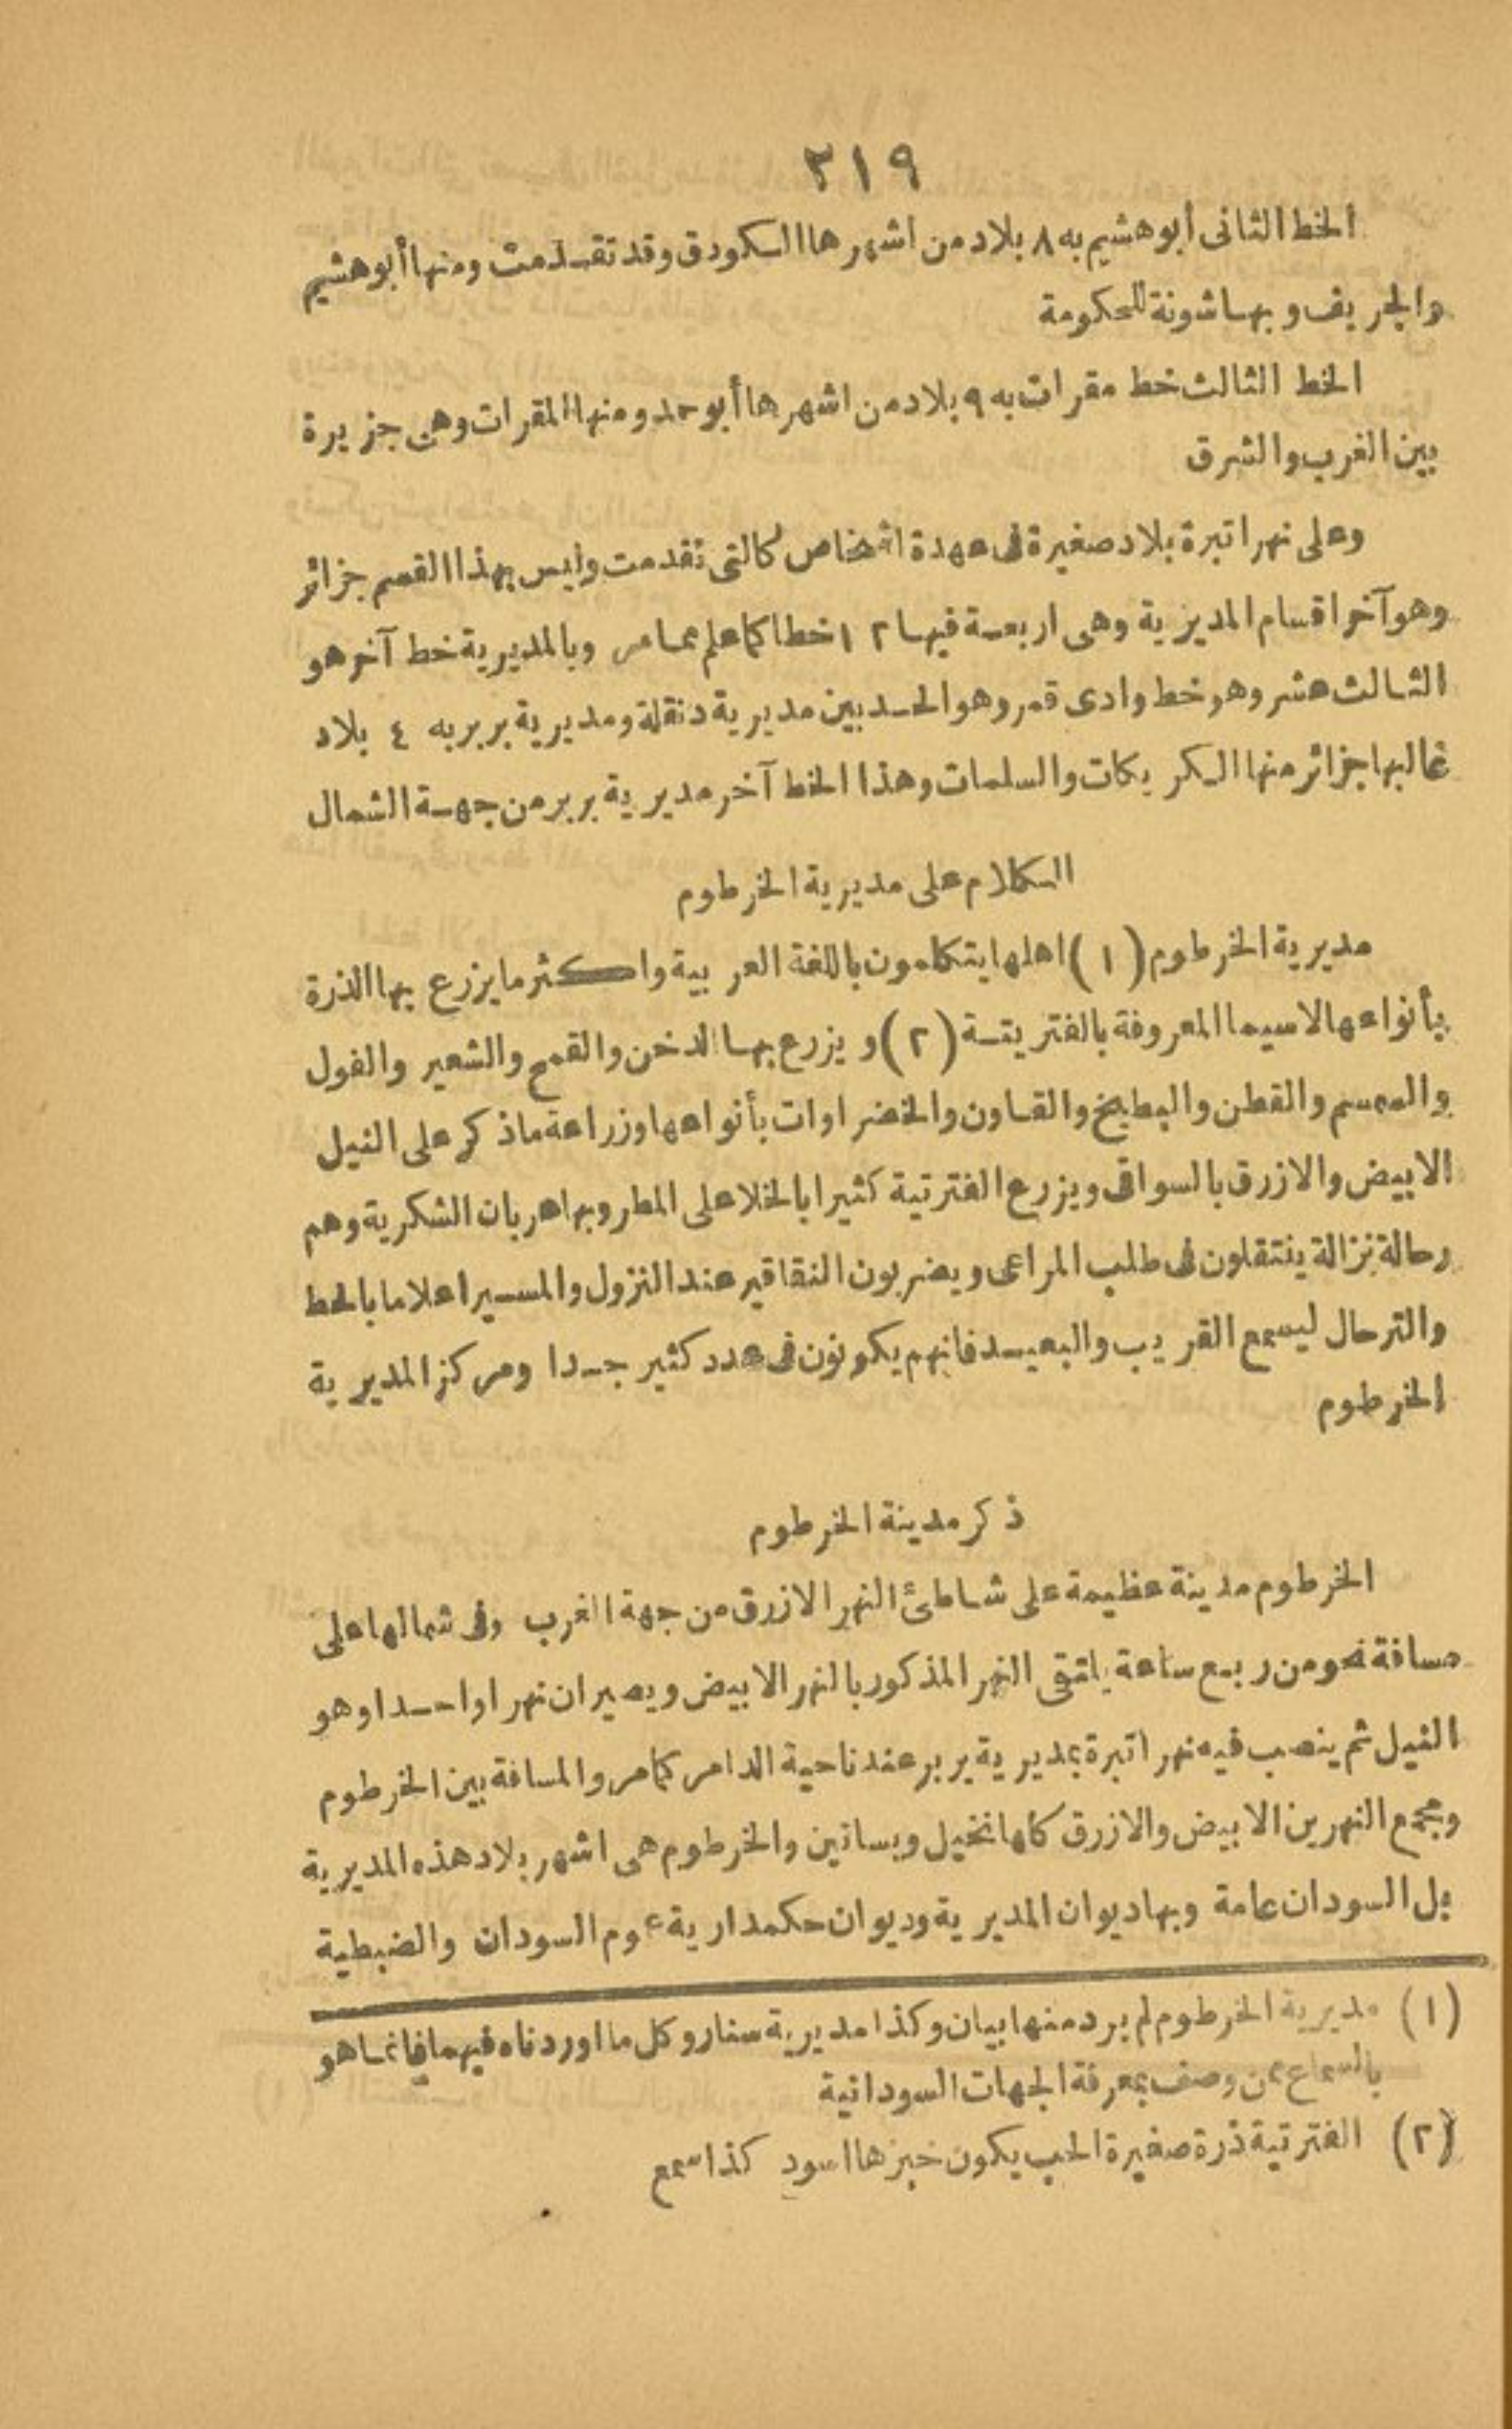 ٣١٩
الخط الثانى أبوهشيم به ٨ بلاد من اشهرها السكودق وقد تقدمت ومنها أبوهشيم
والجريف وبها شونة للحكومة
الخط الثالث خط مقرات به ٩ بلاد من اشهرها أبوحمد ومنها المقرات وهى جزيرة
بين الغرب والشرق
وعلى نهر اتبرة بلاد صغيرة فى عهدة اشخاص كالتى تقدمت وليس بهذا القسم جزائر
وهو آخر اقسام المديرية وهى اربعة فيها ١٢ خطا كما علم مما مر وبالمديرية خط آخر هو
الثالث عشر وهو خط وادى قمر وهو الحد بين مديرية دنقلة ومديرية بربر به ٤ بلاد
غالبها جزائر منها الكربكات والسلمات وهذا الخط آخر مديرية بربر من جهة الشمال
الكلام على مديرية الخرطوم
مديرية الخرطوم (١) اهلها يتكلمون باللغة العربية واكثر ما يزرع بها الذرة
بأنواعها لاسيما المعروفة بالفتريتة (٢) ويزرع بها الدخن والقمح والشعير والفول
والسمسم والقطن والبطيخ والقاون والخضراوات بأنواعها وزراعة ماذكر على النيل
الابيض والازرق بالسواقى ويزرع الفترتية كثيرا بالخلا على المطر وبها عربان الشكرية وهم
رحالة نزالة ينتقلون فى طلب المراعى ويضربون النقاقير عند النزول والمسير اعلاما بالحط
والترحال ليسمع القريب والبعيد فانهم يكونون فى عدد كثير جدا ومركز المديرية
الخرطوم
ذكر مدينة الخرطوم
الخرطوم مدينة عظيمة على شاطئ النهر الازرق من جهة الغرب وفى شمالها على
مسافة نحو من ربع ساعة يلتقى النهر المذكور بالنهر الابيض ويصيران نهرا واحدا وهو
النيل ثم ينصب فيه نهر اتبرة بمديرية بربر عند ناحية الدامر كما مر والمسافة بين الخرطوم
ومجمع النهرين الابيض والازرق كلها نخيل وبساتين والخرطوم هى اشهر بلاد هذه المديرية
بل السودان عامة وبها ديوان المديرية وديوان حكمدارية عموم السودان والضبطية
(١) مديرية الخرطوم لم يرد منها بيان وكذا مديرية سنار وكل ما اوردناه فيهما فانما هو
بالسماع ممن وصف بمعرفة الجهات السودانية
(٢) الفترتية ذرة صغيرة الحب يكون خبزها اسود كذا سمع